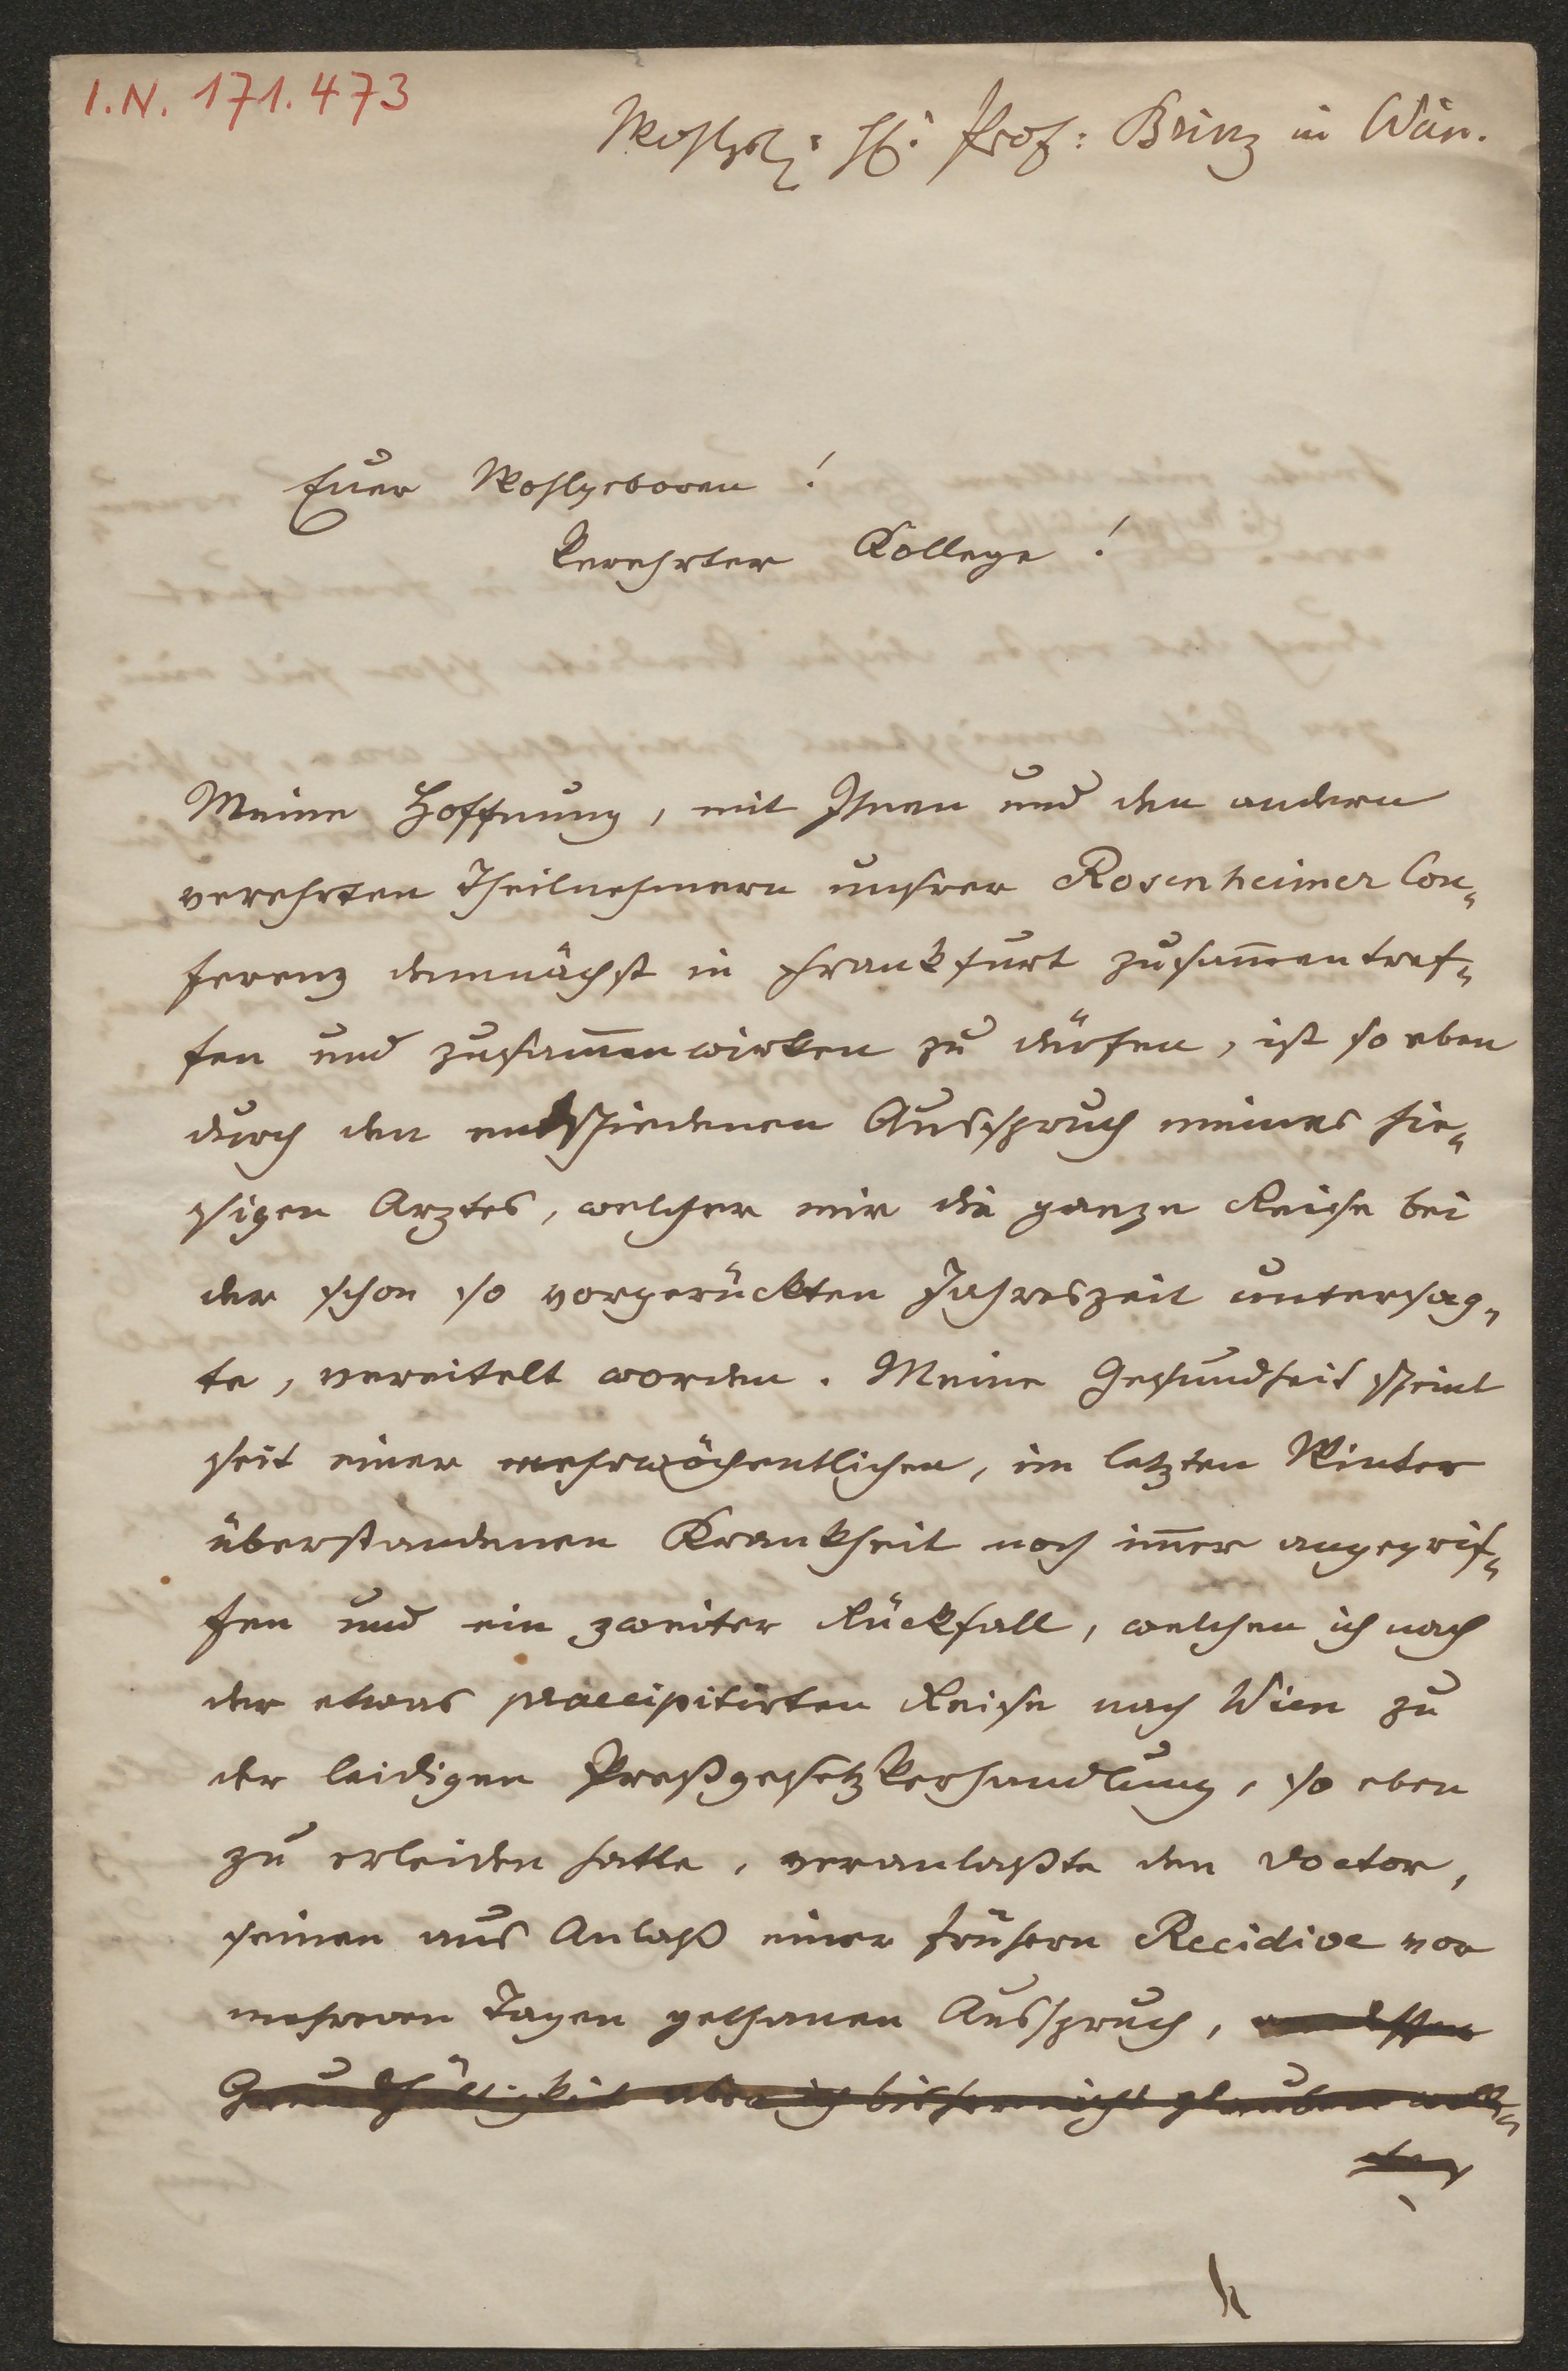 I.N. 171.473
Wohlgb: H: Prof: Brinz in Wien.
Euer Wohlgeboren!
Verehrter Kollege!
Meine Hoffnung, mit Ihnen und den andern
verehrten Theilnehmern unsrer Rosenheimer Con„
ferenz demnächst in Frankfurt zusam̄entref„
fen und zusam̄enwirken zu dürfen, ist so eben
durch den entschiedenen Ausspruch meines hie„
sigen Arztes, welcher mir die ganze Reise bei
der schon so vorgerückten Jahreszeit untersag„
te, vereitelt worden. Meine Gesundheit scheint
seit einer mehrwöchentlichen, im letzten Winter
überstandenen Krankheit noch im̄er angegrif„
fen und ein zweiter Rückfall, welchen ich nach
der etwas praecipitirten Reise nach Wien zu
der leidigen Preßgesetzverhandlung, so eben
zu erleiden hatte, veranlaßte den Doctor,
seinen aus Anlaß einer frühern Recidive vor
mehreren Tagen gethanen Ausspruch, an dessen
Grundhältigkeit aber ich bisher nicht glauben woll„
te,